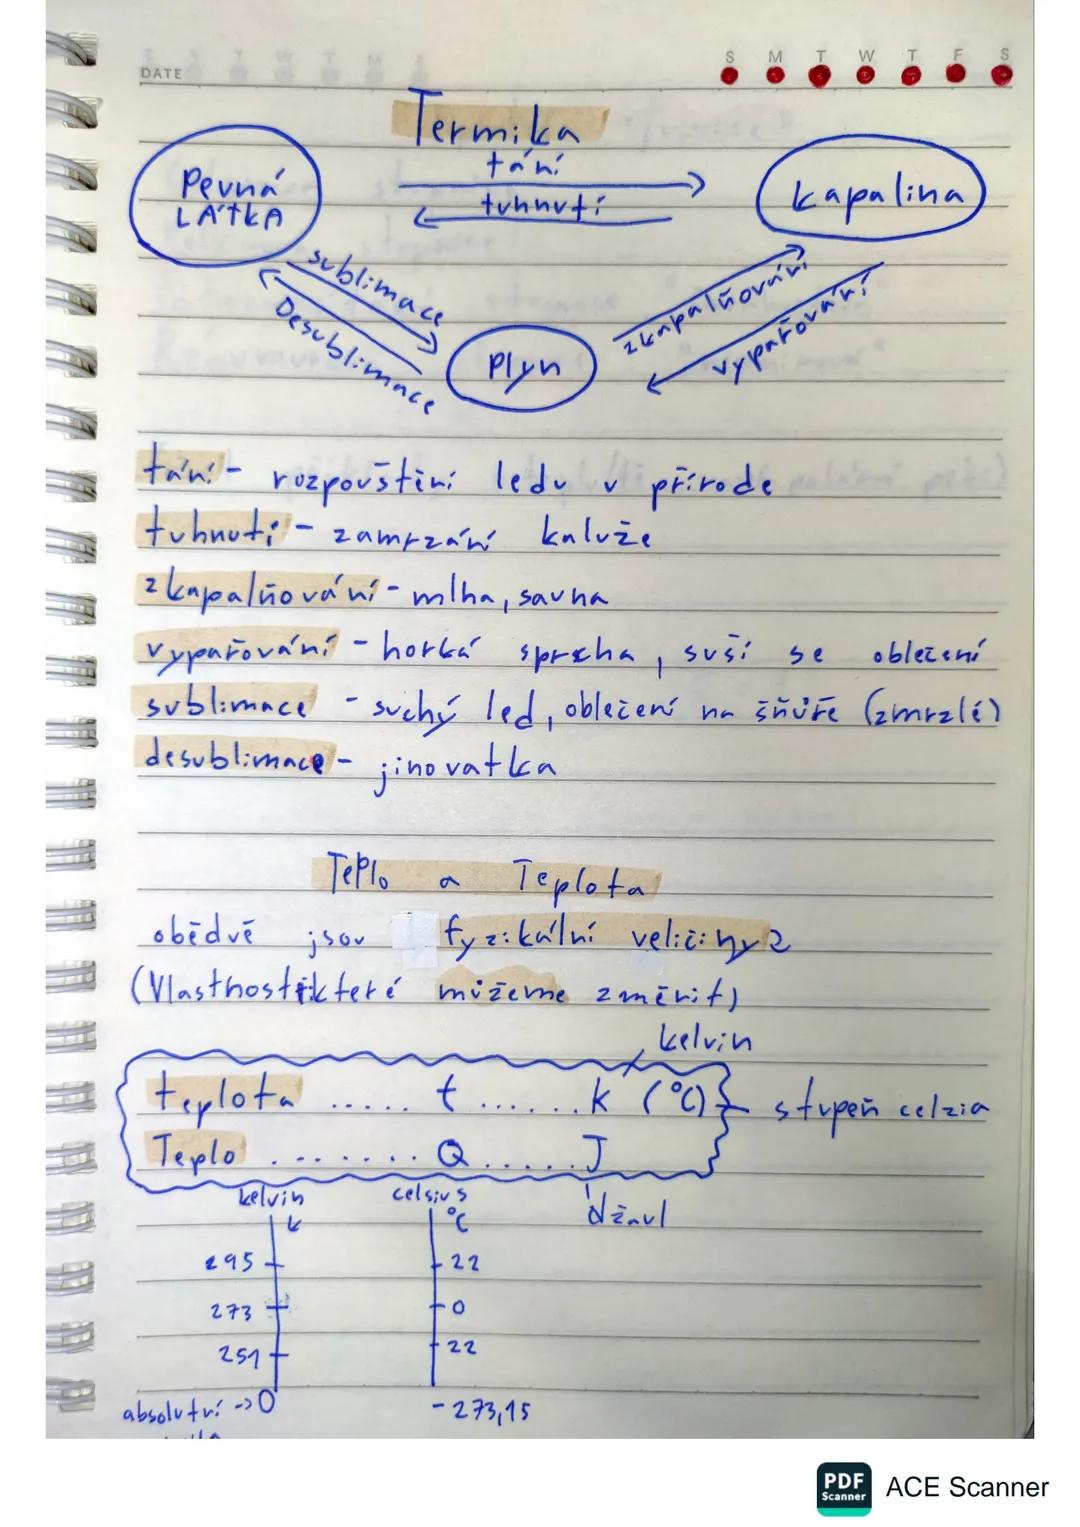 DATE
S M T W T F S
Termika
tání
Pevná
LÁTKA
tuhnutí
kapalina
sublimace
Desublimace
Plyn
zkapalňování
vypařování
tání - rozpouštění ledu v přírode
tuhnutí - zamrzání kaluže
zkapalňování - mlha, sauna
vypařování - horká sprcha, suší se oblečení
sublimace - suchý led, oblečení na šňůře (zmrzlé)
desublimace - jinovatka
Teplo a Teplota
obědvě jsou fyzikální veličiny
(Vlasthosti které můžeme změrit)
kelvin
teplota ..... t ...... K (°C) stupeň celzia
Teplo ........ Q ..... J
džaul
kelvin celsius
K °C
295 22
273 0
251 22
absolutní -> 0 -273,15
PDF Scanner ACE Scanner